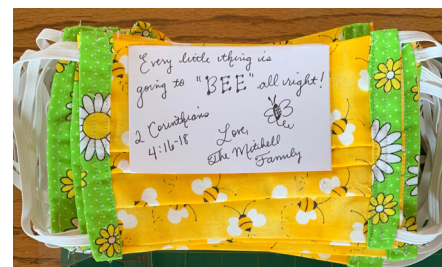 Every little thing is
going to "BEE" all right!
2 Corinthians
4:16-18
Love,
The Mitchell
Family